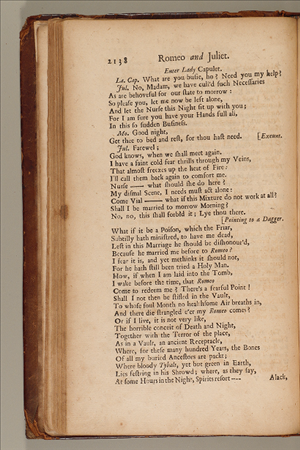 2138 Romeo and Juliet.
Enter Lady Capulet.
La. Cap. What are you busie, ho? Need you my help?
Jul. No, Madam, we have cull'd such Necessaries
As are behoveful for our state to morrow:
So please you, let me now be left alone,
And let the Nurse this Night sit up with you;
For I am sure you have your Hands full all,
In this so sudden Business.
Mo. Good night,
Get thee to bed and rest, for thou hast need. [Exeunt.
Jul. Farewel;
God knows, when we shall meet again.
I have a faint cold fear thrills through my Veins,
That almost freezes up the heat of Fire:
I'll call them back again to comfort me.
Nurse —— what should she do here?
My dismal Scene, I needs must act alone:
Come Vial —— what if this Mixture do not work at all?
Shall I be married to morrow Morning?
No, no, this shall forbid it; Lye thou there.
[Pointing to a Dagger.
What if it be a Poison, which the Friar,
Subtilly hath ministred, to have me dead,
Lest in this Marriage he should be dishonour'd,
Because he married me before to Romeo?
I fear it is, and yet methinks it should not,
For he hath still been tried a Holy Man.
How, if when I am laid into the Tomb,
I wake before the time, that Romeo
Come to redeem me? There's a fearful Point!
Shall I not then be stifled in the Vault,
To whose foul Mouth no healthsome Air breaths in,
And there die strangled e'er my Romeo comes?
Or if I live, it is not very like,
The horrible conceit of Death and Night,
Together with the Terror of the place,
As in a Vault, an ancient Receptacle,
Where, for these many hundred Years, the Bones
Of all my buried Ancestors are packt;
Where bloody Tybalt, yet but green in Earth,
Lies festring in his Shrowd; where, as they say,
At some Hours in the Night, Spirits resort ——
Alack,